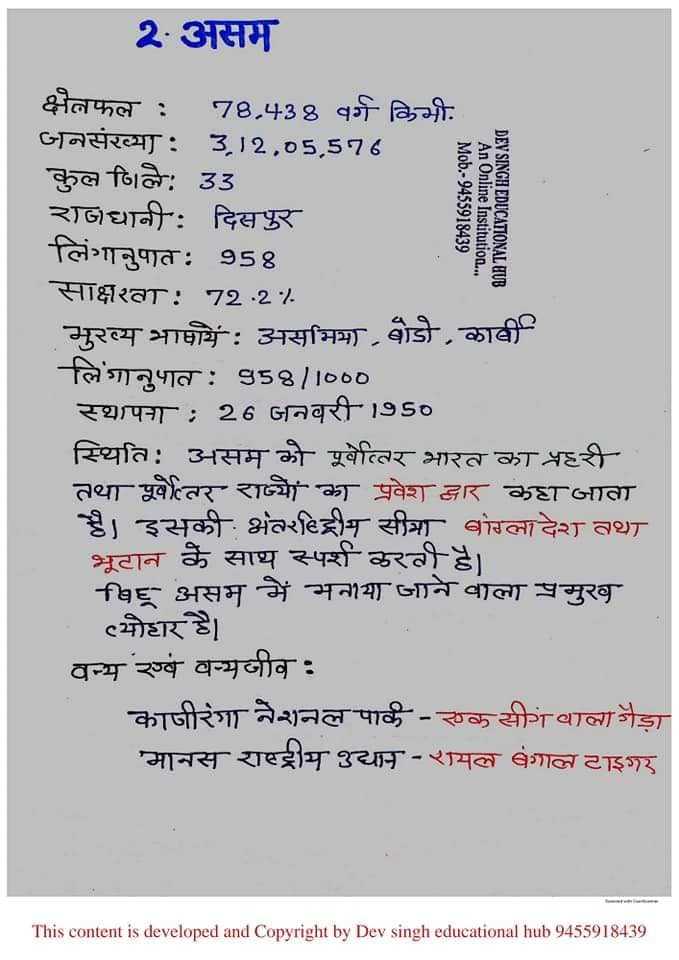 2. असम
क्षेत्रफल : 78,438 वर्ग किमी.
जनसंख्या : 3,12,05,576
कुल जिले: 33
राजधानी : दिसपुर
लिंगानुपात : 958
साक्षरता : 72.2%
मुख्य भाषायें : असमिया, बोडो, कार्बी
लिंगानुपात : 958/1000
स्थापना : 26 जनवरी 1950
स्थिति: असम को पूर्वोत्तर भारत का प्रहरी
तथा पूर्वोत्तर राज्यों का प्रवेश द्वार कहा जाता
है। इसकी अंतर्राष्ट्रीय सीमा बांग्लादेश तथा
भूटान के साथ स्पर्श करती है।
बिहू असम में मनाया जाने वाला प्रमुख
त्योहार है।
वन्य एवं वन्यजीव :
काजीरंगा नेशनल पार्क - एक सींग वाला गैंडा
मानस राष्ट्रीय उद्यान - रायल बंगाल टाइगर
DEV SINGH EDUCATIONAL HUB
An Online Institution...
Mob.- 9455918439
Scanned with CamScanner
This content is developed and Copyright by Dev singh educational hub 9455918439